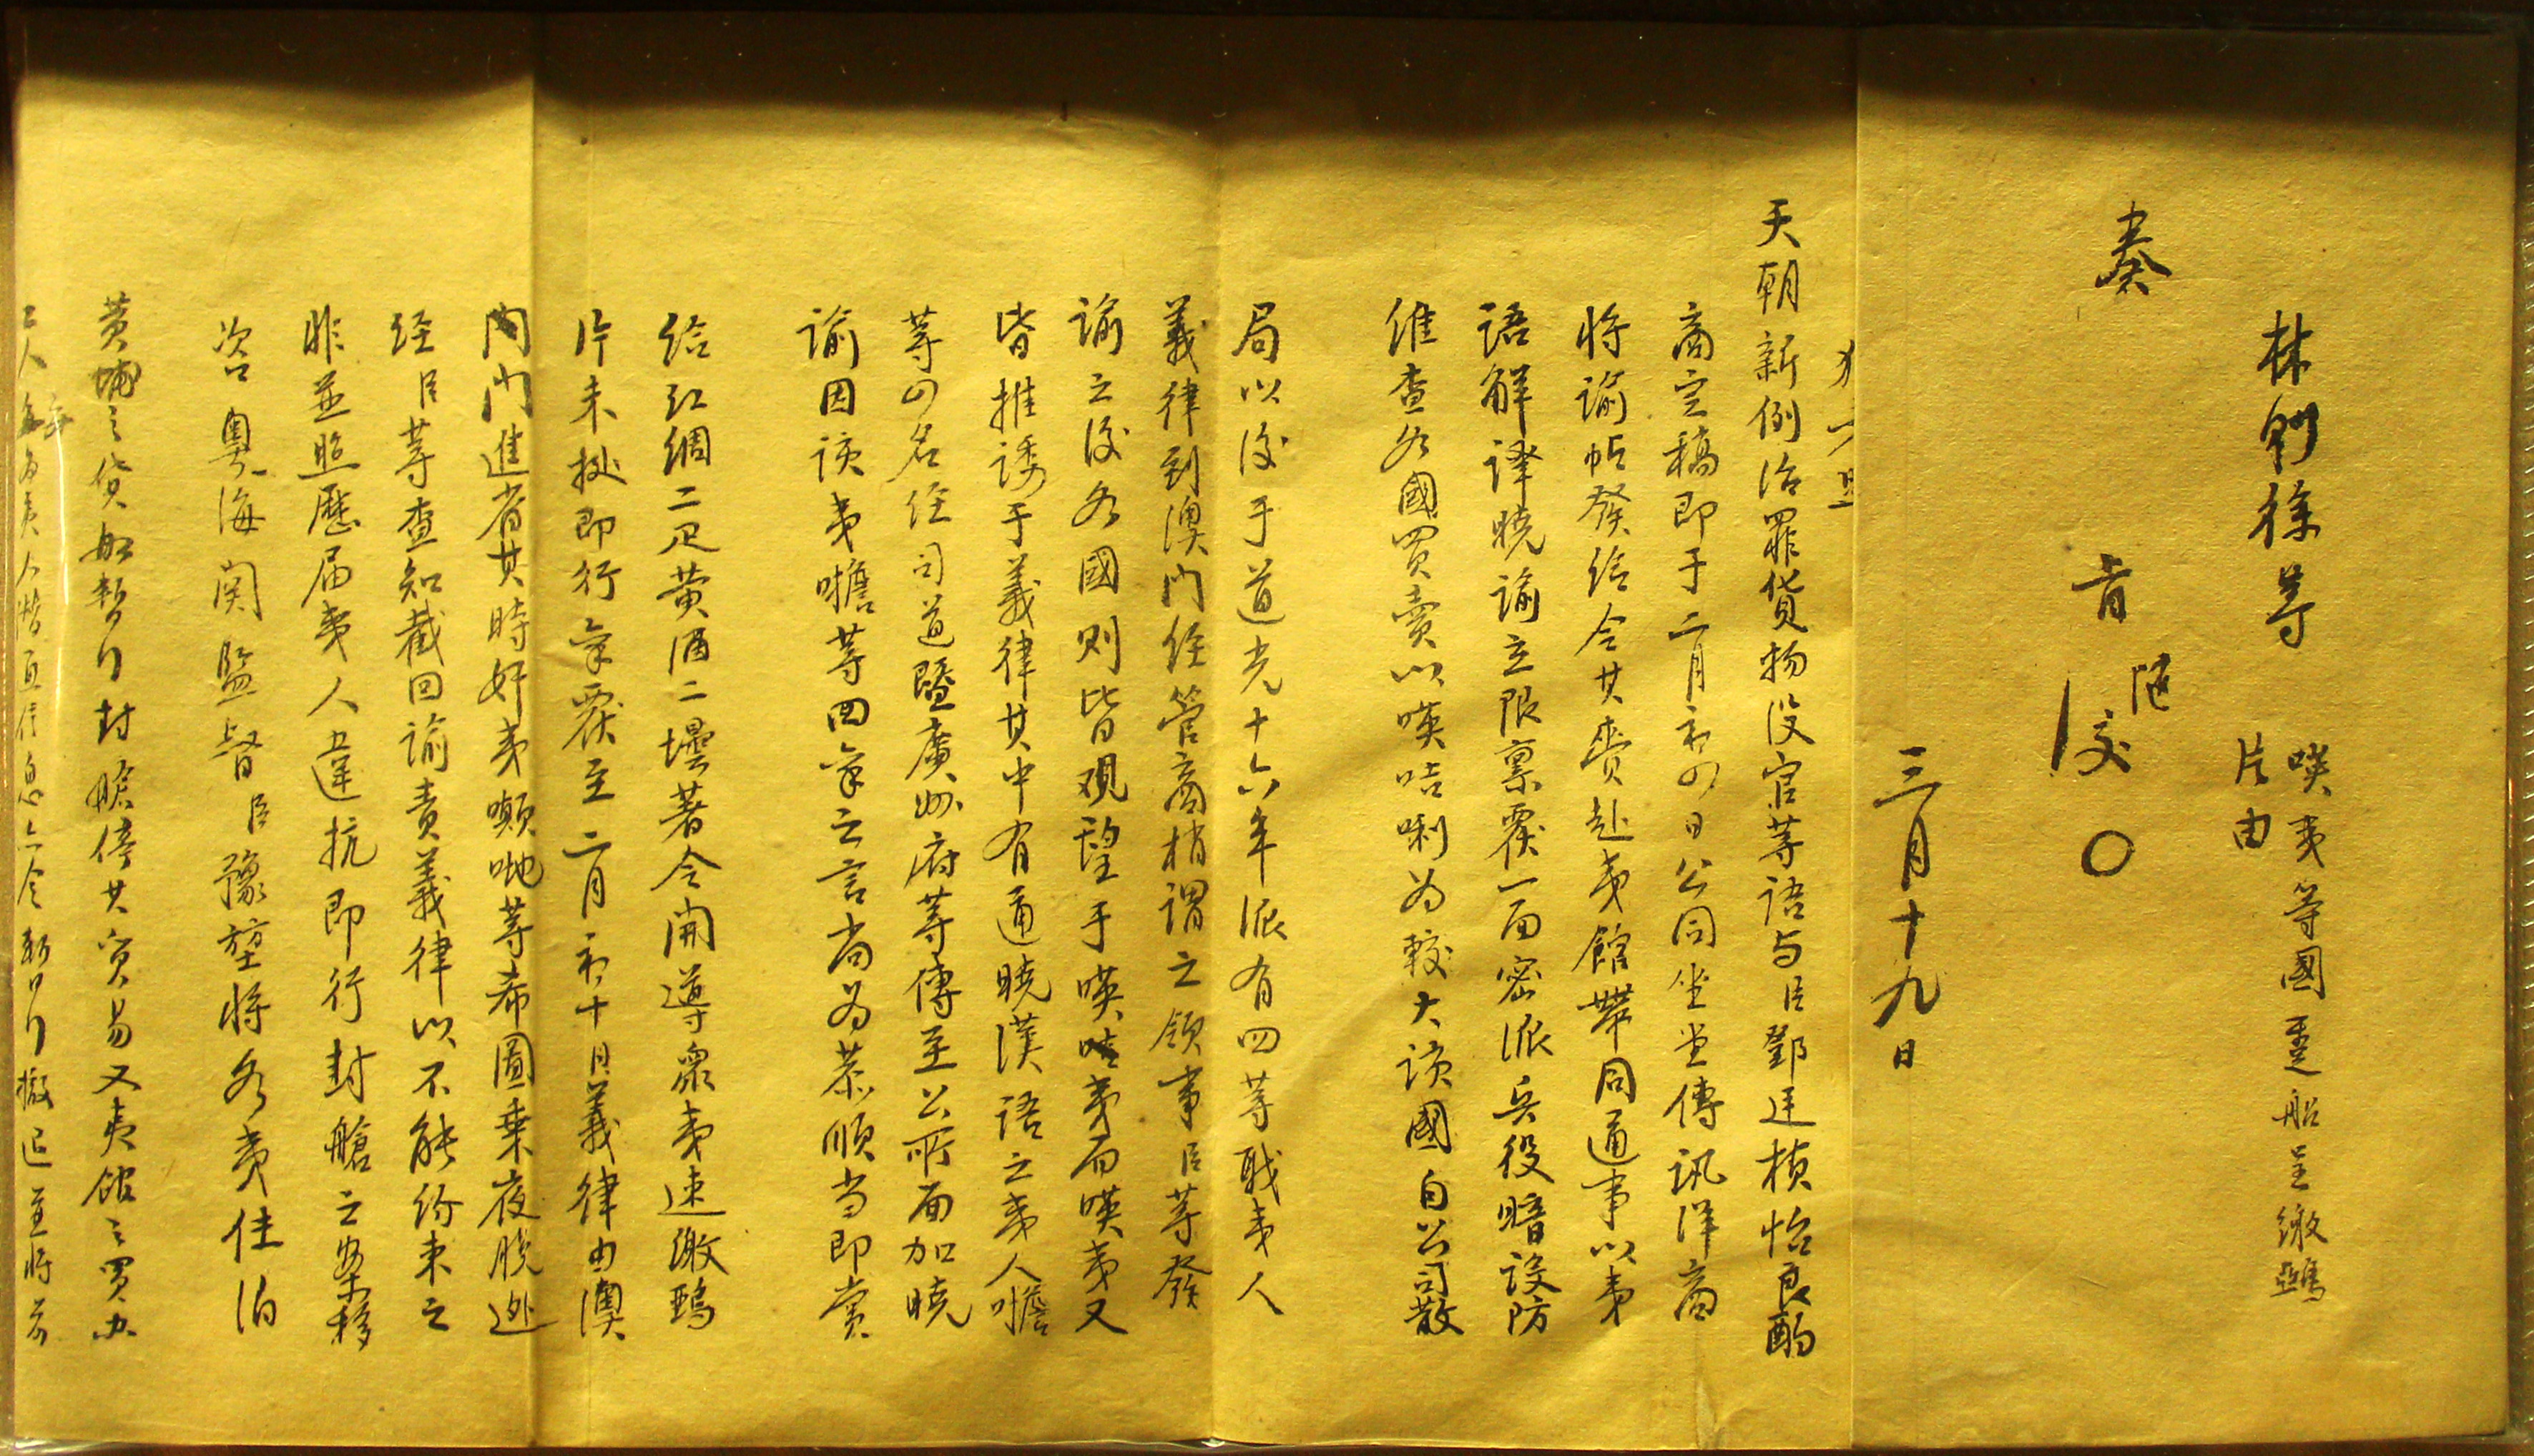 林則徐等
嘆夷等國躉船呈繳鴉
片由
奏
旨
隨
交〇
三月十九日
天朝新例治罪貨物没官等語与臣鄧廷楨怡良酌
商定稿即于二月初四日公同坐堂傳訊洋商
将諭帖發给令其賫赴夷館带同通事以夷
語解譯曉諭立限禀覆一面密派兵役暗設防
維查各國買賣以嘆咭唎为較大该國自公司散
局以後于道光十六年派有四等職夷人
義律到澳门经管商梢謂之領事臣等發
諭之後各國则皆覌望于嘆咭夷而嘆夷又
皆推諉于義律其中有通曉漢語之夷人噡
等四名经司道暨廣州府等傳至公所面加曉
諭因该夷噡等回禀之言尚为恭順当即赏
给红绸二疋黄酒二壜著令開導衆夷速繳鸦
片未挻即行禀覆至二月初十日義律由澳
门進省其時奸夷嚬哋等希圖乗夜脱逃
经臣等查知截回諭责義律以不能约束之
非並照歷届夷人違抗即行封艙之案移
咨粤海関監督臣豫堃将各夷住泊
黄埔之货船暂行封艙停其贸易又夷馆之買办
工人每为夷人潜通信息亦令暂行撤退並将前